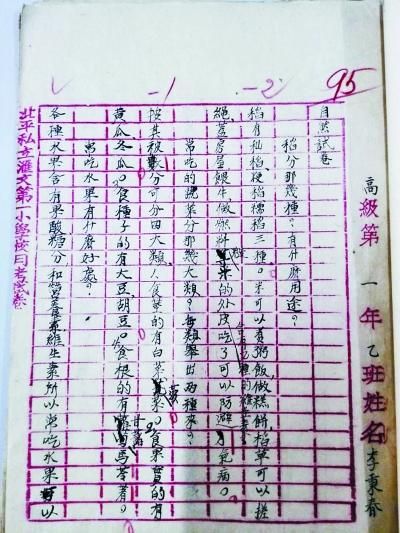 95
-2
-1
高級第一年乙班姓名李東春
自然試卷
稻分那幾種？有什麽用途？
稻有秈稻、粳稻、糯稻三種。米可以煮粥飯、做糕餅、稻草可以搓
繩、蓋房屋、餵牛、做燃料、米的外皮吃了可以防避 病。
常吃的蔬菜分那幾大類？每類舉出兩種來？
按其被 分可分四大類。食葉的有白菜菠菜。食果實的有
黃瓜、冬瓜。食種子的有大豆胡豆。食根的有甘薯馬苓薯。
常吃水果有什麽好處？
各種水果含有果酸糖分和營養素維生素所以常吃水果可以
北平私立滙文第一小學校月考試卷